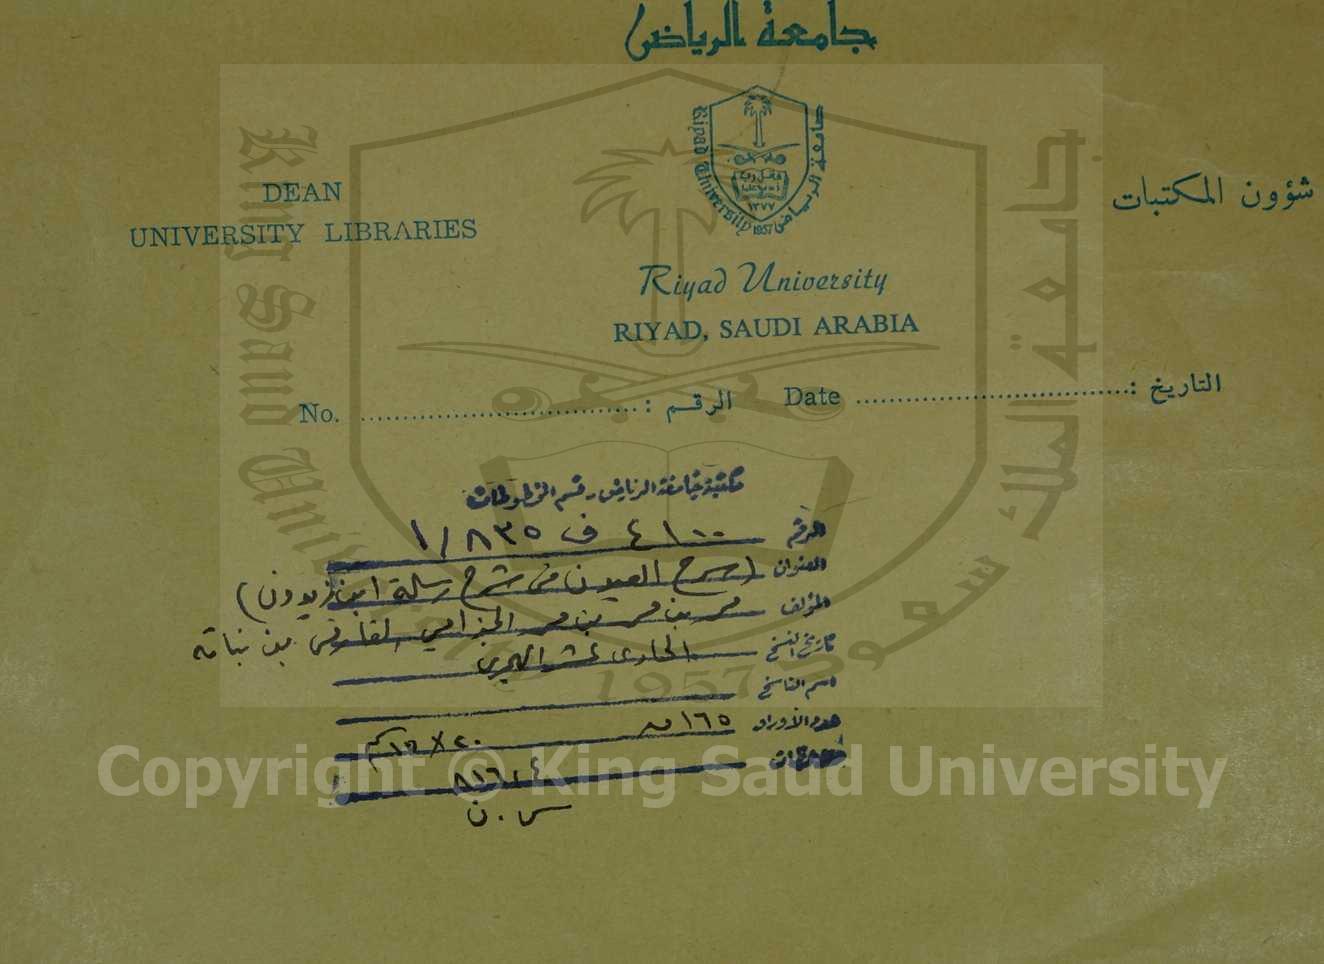 جامعة الرياض
DEAN
UNIVERSITY LIBRARIES
شؤون المكتبات
Riyad University
جامعة الرياض
١٣٧٧
1957
Riyad University
RIYAD, SAUDI ARABIA
No. الرقم :
Date التاريخ :
مكتبة جامعة الرياض - قسم المخطوطات
الرقم ٤١٠٠ ف ٨٣٥/١
العنوان (سرح العيون في شرح رسالة ابن زيدون)
المؤلف محمد بن محمد بن محمد الجذامي الفارقي بن نباتة
تاريخ النسخ الحادى عشر الهجري
اسم الناسخ
عدد الأوراق ١٦٥ ق
٢٠ × ١٦ سم
٨١٦٫٤
س . ن
King Saud University
جامعة الملك سعود
1957
Copyright © King Saud University